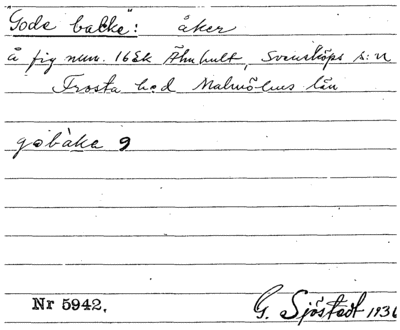 "Gode backe": åker
å fig num. 16 Äk Ähuhult, Svensköps s:n
Frosta hd Malmöhus län
gobàka 9
Nr 5942.
G. Sjöstedt 1936